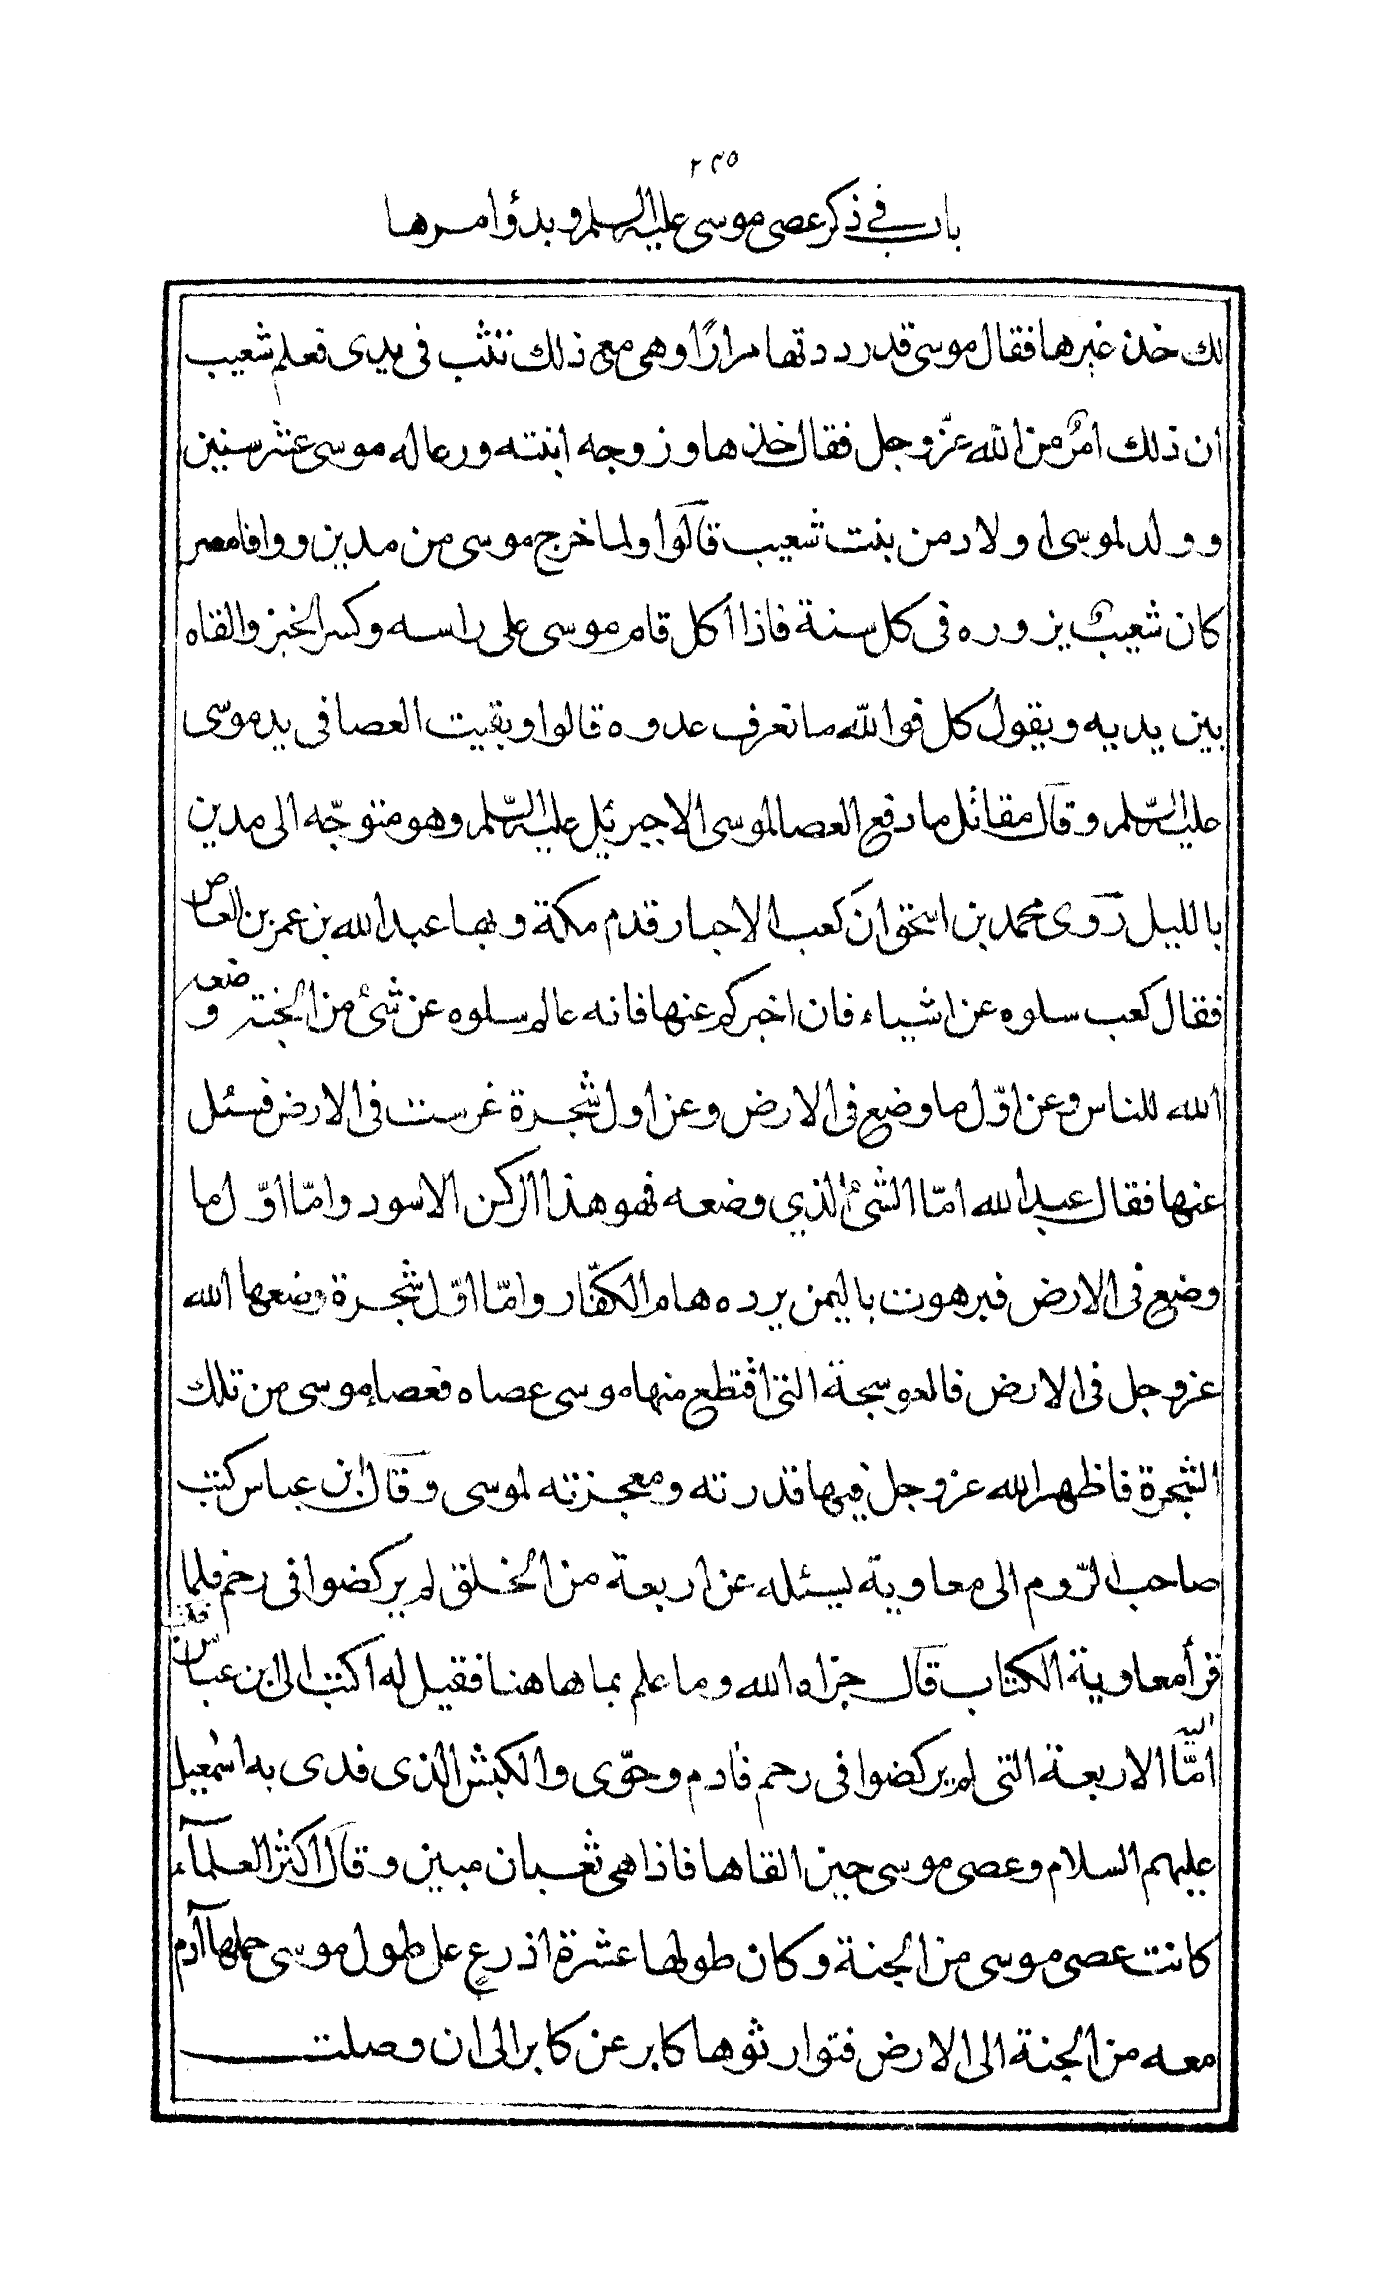 ٢٣٥
باب في ذكر عصى موسى عليه السلم وبدؤ امرها
لك خذ غيرها فقال موسى قد رددتها مرارًا وهى مع ذلك تثب فى يدى فعلم شعيب
ان ذلك امرٌ من الله عزّ وجل فقال خذها وزوجه ابنته ورعا له موسى عشر سنين
وولد لموسى اولاد من بنت شعيب قالوا ولما خرج موسى من مدين ووافا مصر
كان شعيبٌ يزوره فى كل سنة فاذا اكل قام موسى على راسه وكسر الخبز والقاه
بين يديه ويقول كل فوالله ما نعرف عدوه قالوا وبقيت العصا فى يد موسى
عليه السّلم وقال مقاتل ما دفع العصا لموسى الا جبرئيل عليه السّلم وهو متوجّه الى مدين
بالليل روى محمد بن اسحق ان كعب الاحبار قدم مكة وبها عبد الله بن عمر بن العاص
فقال كعب سلوه عن اشياء فان اخبركم عنها فانه عالم سلوه عن شئ من الجنة وضعه
الله للناس وعن اوّل ما وضع فى الارض وعن اول شجرة غرست فى الارض فسئل
عنها فقال عبد الله امّا الشئ الذي وضعه فهو هذا الركن الاسود وامّا اوّل ما
وضع فى الارض فبرهوت باليمن يرده هام الكفّار وامّا اوّل شجرة وضعها الله
عز وجل فى الارض فالعوسجة التى اقتطع منها موسى عصاه فعصا موسى من تلك
الشجرة فاظهر الله عز وجل فيها قدرته ومعجزته لموسى وقال ابن عباس كتب
صاحب الرّوم الى معاوية يسئله عن اربعة من الخلق لم يركضوا فى رحم فلما
قرأ معاوية الكتاب قال جزاه الله وما علم بما هاهنا فقيل له اكتب الى ابن عباس فكتب
اليه امّا الاربعة التى لم يركضوا فى رحم فادم وحوّى والكبش الذى فدى به اسمعيل
عليهم السلام وعصى موسى حين القاها فاذا هى ثعبان مبين وقال اكثر العلمآء
كانت عصى موسى من الجنة وكان طولها عشرة اذرع على طول موسى حملها آدم
معه من الجنة الى الارض فتوارثوها كابر عن كابر الى ان وصلت